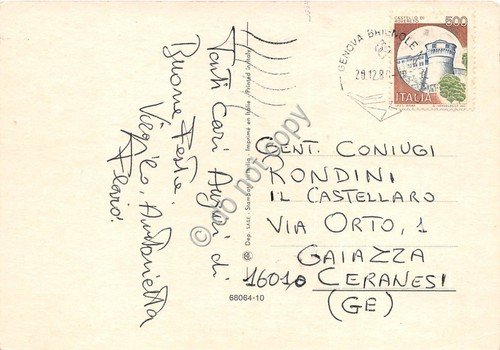 Tanti Cari Auguri di
Buone Feste.
Virgilio, Antonietta
Flavio.
Dep. SAEE - Stampato in Italia - Imprimé en Italie - Printed in Italy
68064-10
do not copy
GENOVA BRIGNOLE
28.12.8
CASTELLO DI
ROVERETO
500
ITALIA
GENT. CONIUGI
RONDINI
IL CASTELLARO
VIA ORTO, 1
GAIAZZA
16010 CERANESI
(GE)